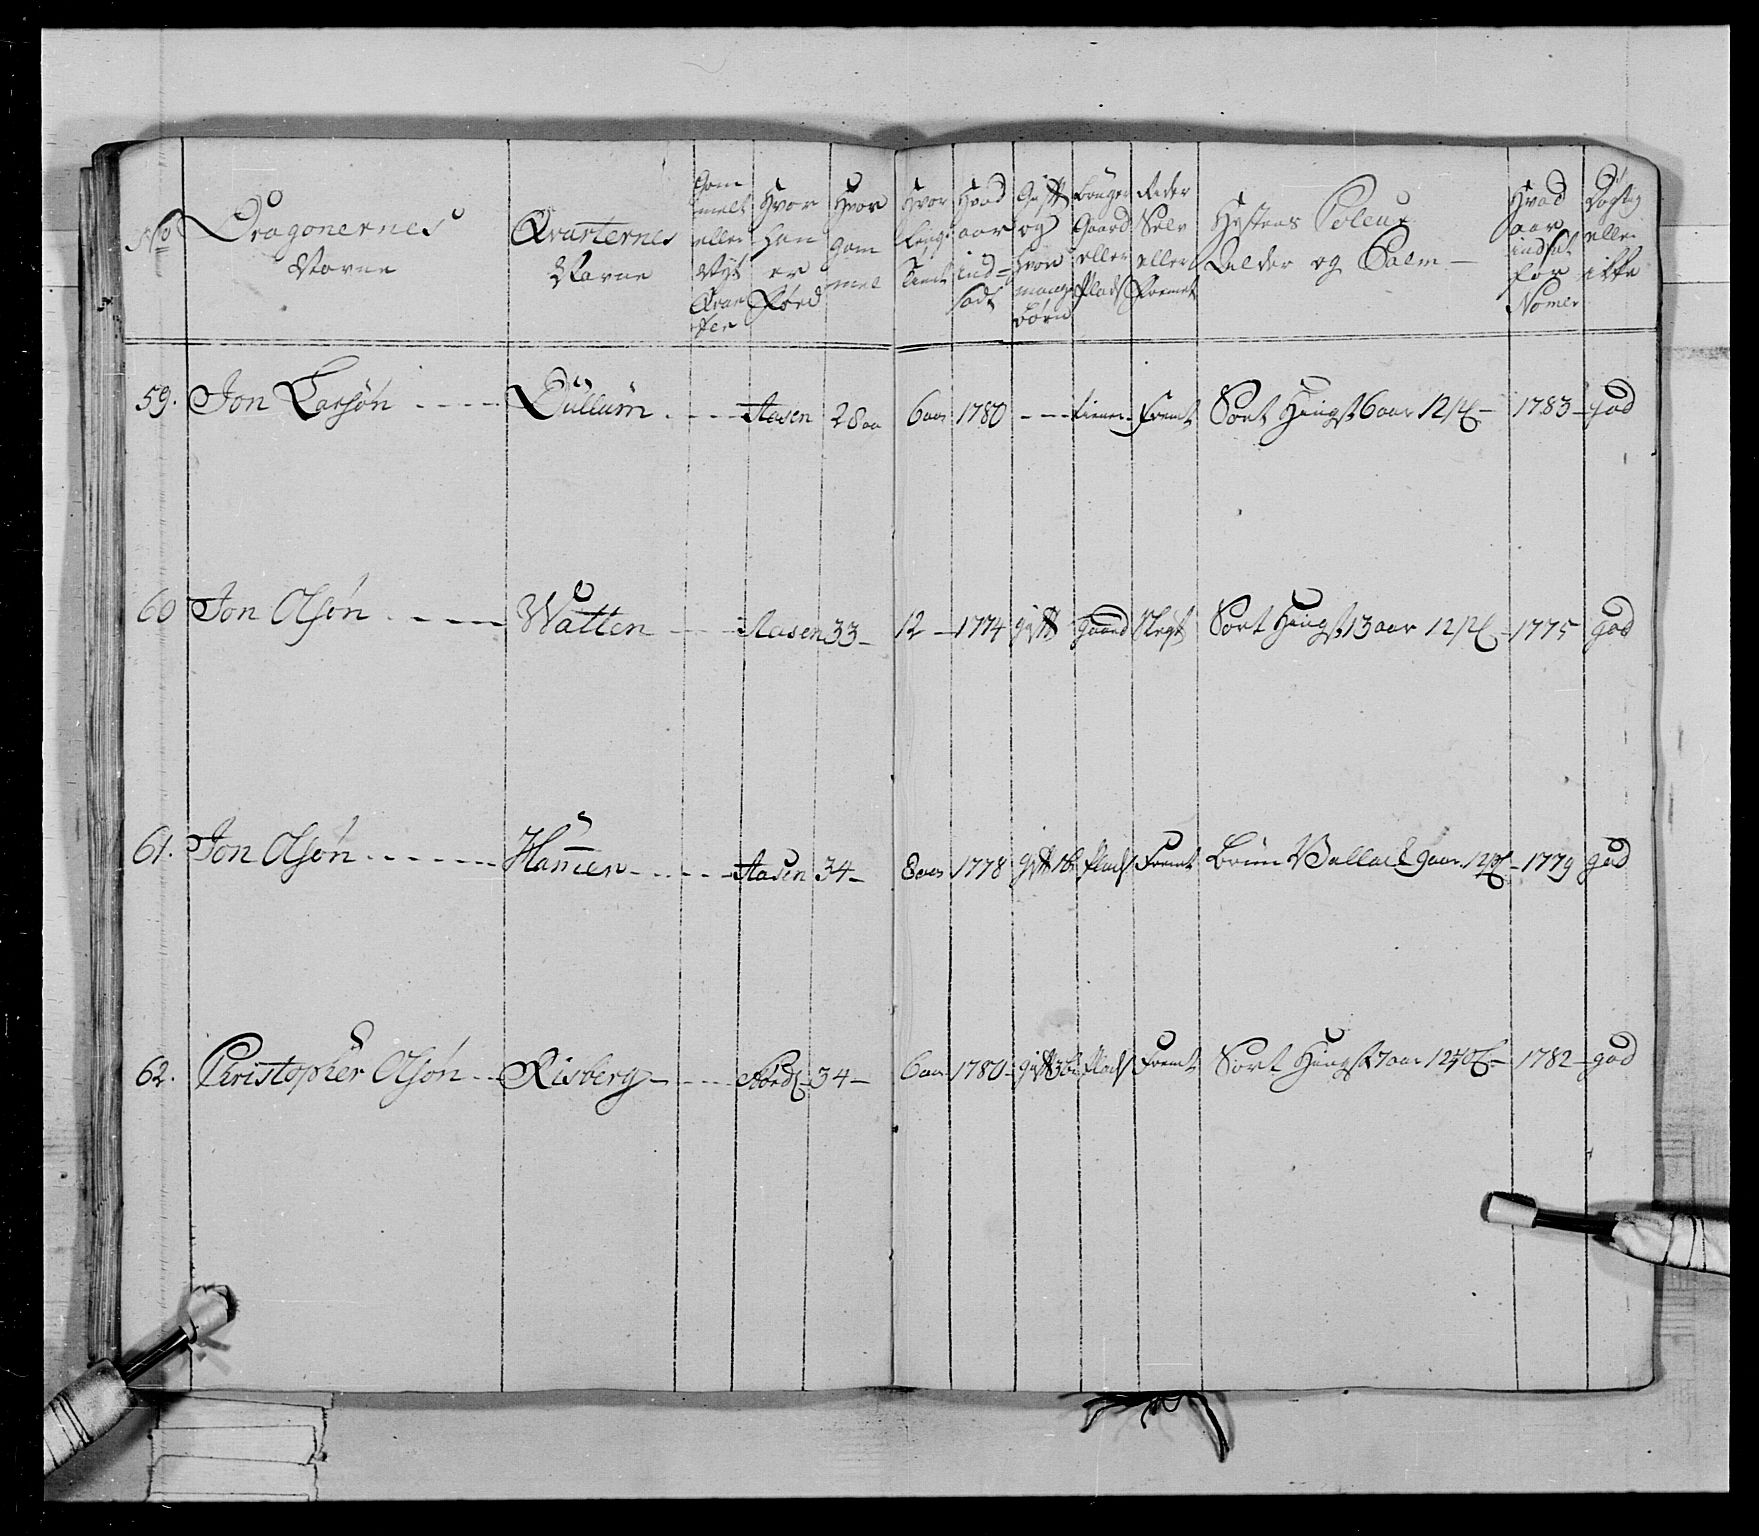 No
Dragonernes
Navne
Qvarternes
Navne
Gam
melt
eller
Nyt
Qvar
ter
Hvor
han
er
Fød
Hvor
gam
mel
Hvor
længe
tient
Hvad
aar
ind=
sadt
Gift
og
hvor
mange
Børn
Bruger
Gaard
eller
Plads
Rider
Selv
eller
Fremt
Hæstens Coleur
Alder og Palm —
Hvad
aar
indsat
for
Nomer
Dygtig
eller
ikke
59. Jon Larsøn Dullum Aasen 28 aar 6 aar 1780 tiener Fremt Sort Hingst 6 aar 12 1783 god
60 Jon Olsøn Watten Aasen 33 12 1774 gift gaard Sort Hingst 13 aar 12 1775 god
61. Jon Olsøn Hammen Aasen 34 8 aar 1778 gift 1 b. Plads Fremt Brun Vallack 9 aar 12 1779 god
62. Christopher Olsøn Risberg 34 6 aar 1780 gift 3 b. Plads Fremt Sort Hingst 7 aar 12 1782 god